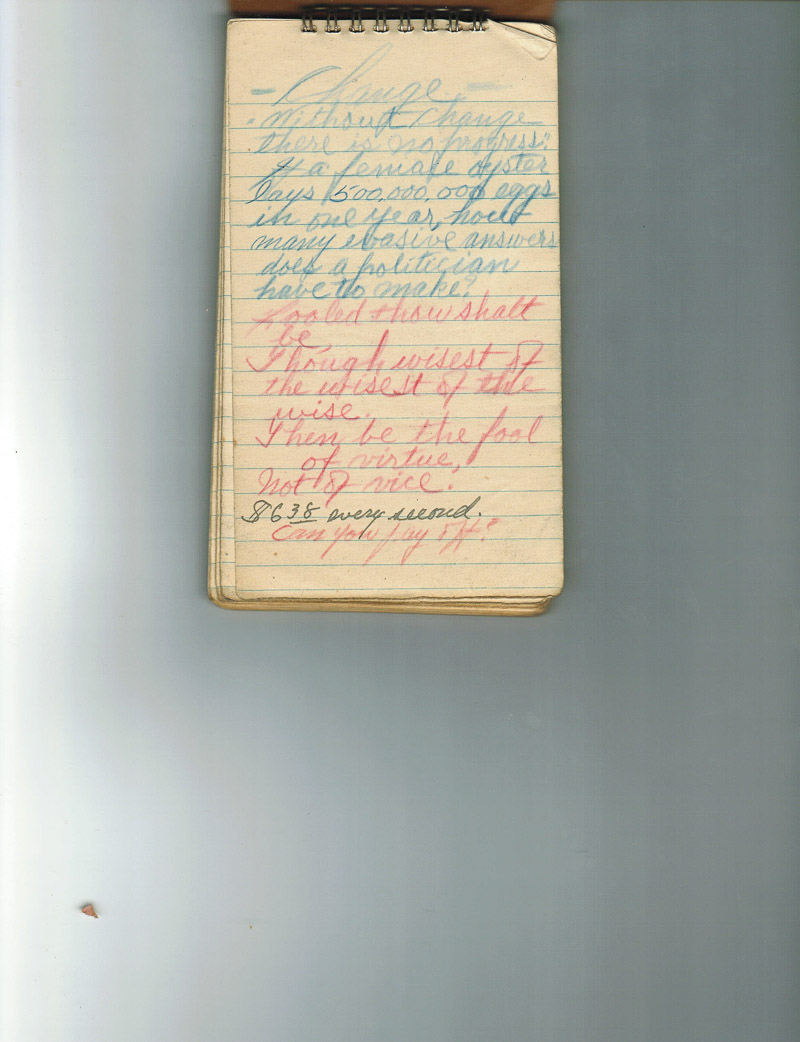 - Change -
"Without Change
there is no progress."
If a female oyster
lays 500,000,000 eggs
in one year, how
many evasive answers
does a politician
have to make?
Fooled thow shalt
be,
Though wisest of
the wisest of the
wise.
Then be the fool
of virtue,
Not of vice.
$638 every second.
Can you pay off?